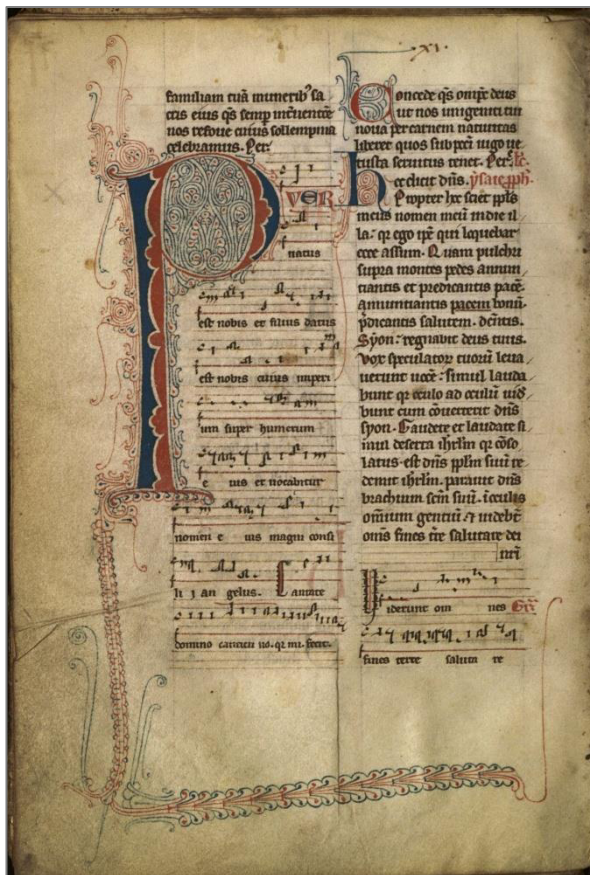 xi.
familiam tuā munerib' sa
cris eius qs semp interuentiōe
nos refoue cuius sollempnia
celebramus. Per.
PVER
natus
est nobis et filius datus
est nobis cuius imperi
um super humerum
e ius et uocabitur
nomen e ius magni consi
li i an gelus. Cantate
domino canticū no. qr mi. fecit.
Concede qs omps deus
ut nos unigeniti tui
noua per carnem natiuitas
liberet quos sub pcti iugo ue
tusta seruitus tenet. Per.
Hec dicit dns. ysaie pph.
Propter hoc sciet ppls
meus nomen meū in die il
la: qr ego ipe qui loquebar
ecce assum. Quam pulchri
supra montes pedes annun
tiantis et predicantis pacē.
annuntiantis pacem bonū.
pdicantis salutem. dicētis.
Syon: regnabit deus tuus.
Vox speculatorū tuorū leua
uerunt uocē: simul lauda
bunt qr oculo ad oculū uid
bunt cum cōuerterit dns
syon. Gaudete et laudate si
mul deserta ihrlm qr cōso
latus est dns pplm suū re
demit ihrlm. parauit dns
brachium scm suū. ī oculis
omium gentiū. et uidebt
oms fines tre salutare dei
nri
Viderunt om nes Gr
fines terre saluta re